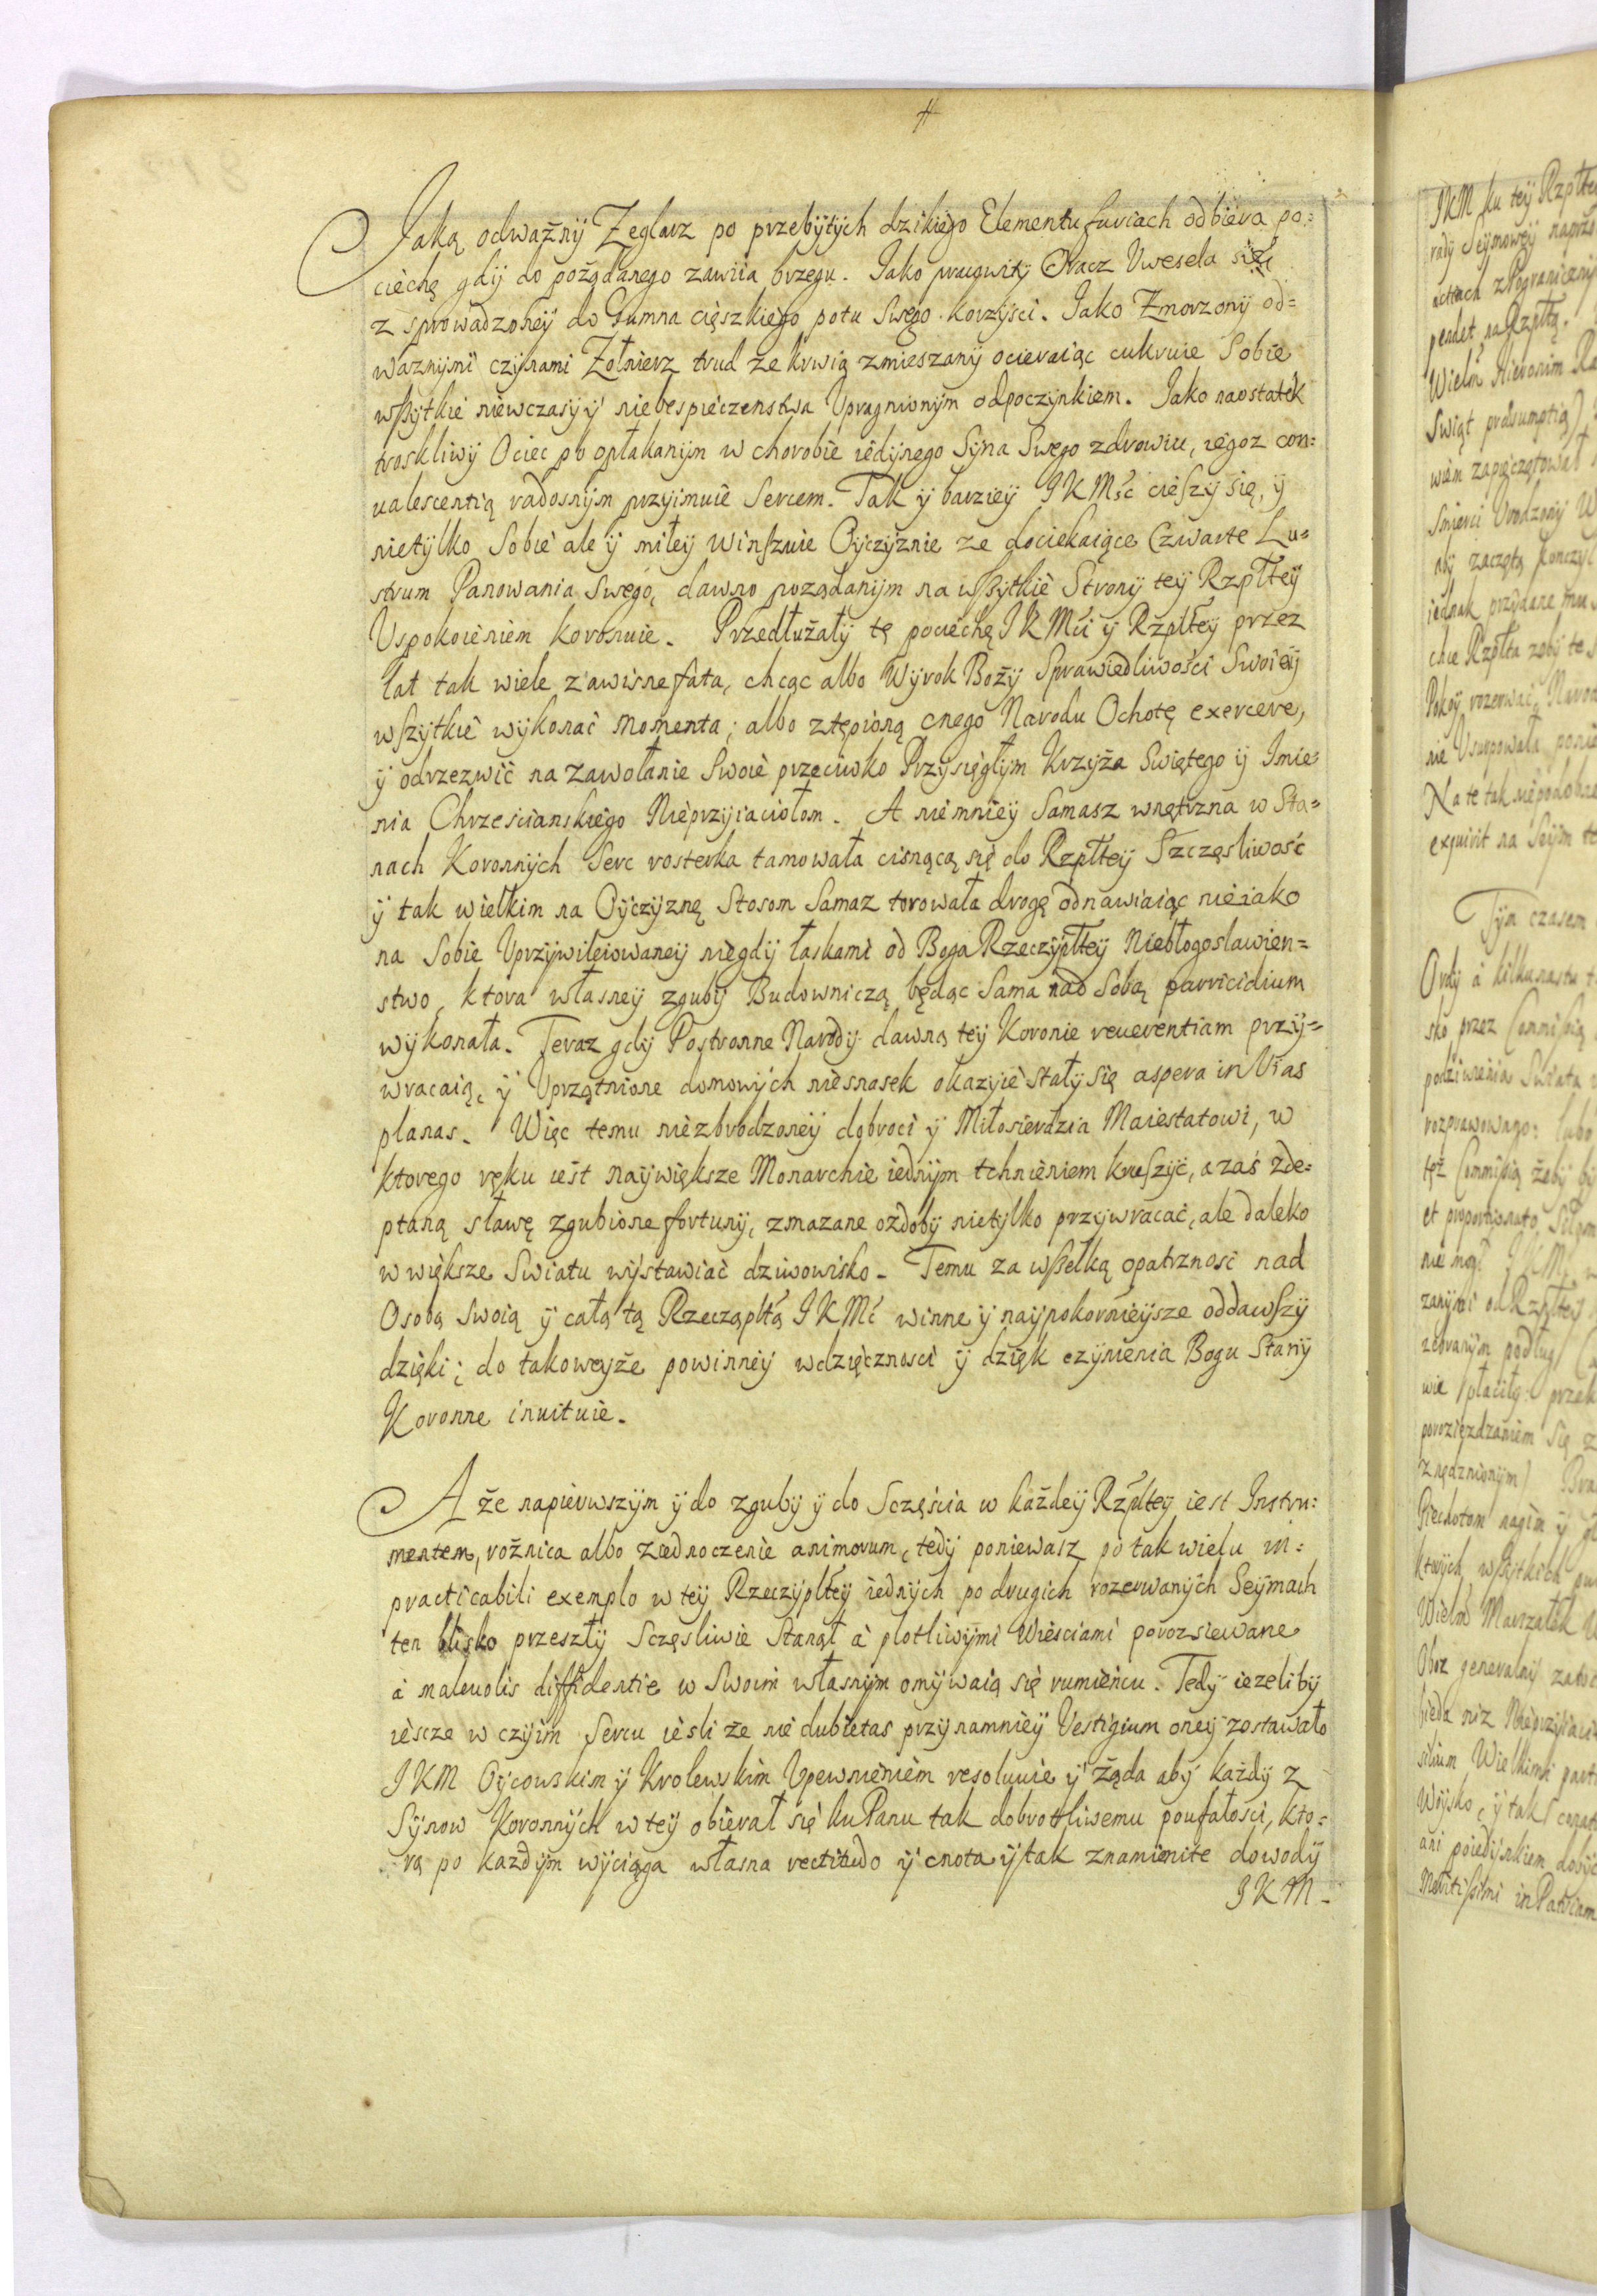 Jaką odważny Zeglarz po przebytych dzikiego Elementu furiach odbiera po=
ciechę gdy do pożądanego zawiia brzegu. Jako pracowity Oracz Uwesela się
z sprowadzoney do Gumna cięszkiego potu Swego korzysci. Jako Zmorzony od=
waznymi czynami Zołnierz trud ze krwią zmieszany ocieraiąc cukruie Sobie
wszytkie niewczasy y niebespieczenstwa Upragnionym odpoczynkiem. Jako naostatek
troskliwy Ociec po opłakanym w chorobie iedynego Syna Swego zdrowiu, iegoz con=
ualescentią radosnym przyimuie Sercem. Tak y barziey JKMść cieszy się, y
nietylko Sobie ale y miłey Winszuie Oyczyznie ze dociekaiące Czwarte Lu=
strum Panowania Swego, dawno pozadanym na wszytkie Strony tey Rzpłtey
Uspokoieniem koronuie. Przedłużały tę pociechę JKMći y Rzpłtey przez
lat tak wiele zawisne fata, chcąc albo Wyrok Boży Sprawiedliwości Swoiey
wszytkie wykonać momenta; albo ztępioną cnego Narodu Ochotę exercere,
y odrzezwić na zawołanie Swoie przeciwko Przysięgłym Krzyża Swiętego y Imie=
nia Chrzescianskiego Nieprzyiaciołom. A niemniey Samasz wnętrzna w Sta=
nach Koronnych Serc rosterka tamowała cisnącą się do Rzpłtey Szczęsliwość
y tak wielkim na Oyczyznę Stosom Samaz torowała drogę odnawiaiąc nieiako
na Sobie Uprzywileiowaney niegdy łaskami od Boga Rzeczypłtey Niebłogosławien=
stwo, ktora własney zguby Budowniczą będąc Sama nad Sobą parricidium
wykonała. Teraz gdy Postronne Narody dawną tey Koronie reuerentiam przy=
wracaią, y Uprzątnione domowych niesnasek okazyie stały się aspera in Vias
planas. Więc temu niezbrodzoney dobroci y Miłosierdzia Maiestatowi, w
ktorego ręku iest naywiększe Monarchie iednym tchnieniem kruszyć, a zaś zde=
ptaną sławę zgubione fortuny, zmazane ozdoby nietylko przywracać, ale daleko
w większe Swiatu wystawiać dziwowisko. Temu za wszelką opatrzność nad
Osobą Swoią y całą tą Rzecząpłtą JKMć winne y naypokornieysze oddawszy
dzięki; do takoweyże powinney wdzięcznosci y dzięk czynienia Bogu Stany
Koronne inuituie.
A że napierwszym y do zguby y do Sczęścia w każdey Rzpltey iest Instru=
mentem, rożnica albo ziednoczenie animorum, tedy poniewasz po tak wielu in=
practicabili exemplo w tey Rzeczypłtey iednych po drugich rozerwanych Seymach
ten blisko przeszły Sczęsliwie Stanął à plotliwymi Wiesciami porozsiewane
à maleuolis diffidentie w Swoim własnym omywaią się rumieńcu. Tedy iezeliby
iescze w czyim Sercu iesli że nie dubietas przynamniey Vestigium oney zostawało
JKM Oycowskim y Krolewskim Upewnieniem resoluuie y żąda aby każdy z
Synow Koronnych w tey obierał się ku Panu tak dobrotliwemu poufałości, kto=
rą po każdym wyciąga własna rectitudo y cnota y tak znamienite dowody
JKM.